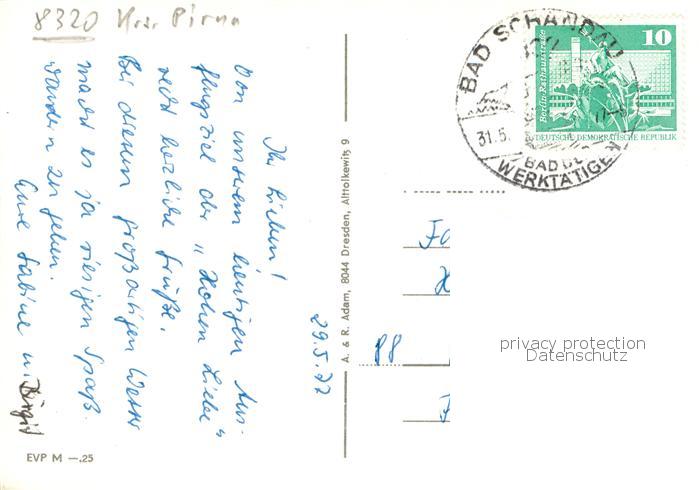 8320 Krs. Pirna
29.5.77
Ihr Lieben!
Von unserem heutigen Aus-
flugsziel der "Hohen Liebe"
recht herzliche Grüße.
Bei diesem großartigen Wetter
macht es ja riesigen Spaß
wandern zu gehen.
Eure Sabine u. Birgit
EVP M —.25
A. & R. Adam, 8044 Dresden, Alttolkewitz 9
BAD SCHANDAU
31.5.
BAD DE
WERKTÄTIGEN
10
Berlin, Rathausstraße
DEUTSCHE DEMOKRATISCHE REPUBLIK
88
privacy protection
Datenschutz